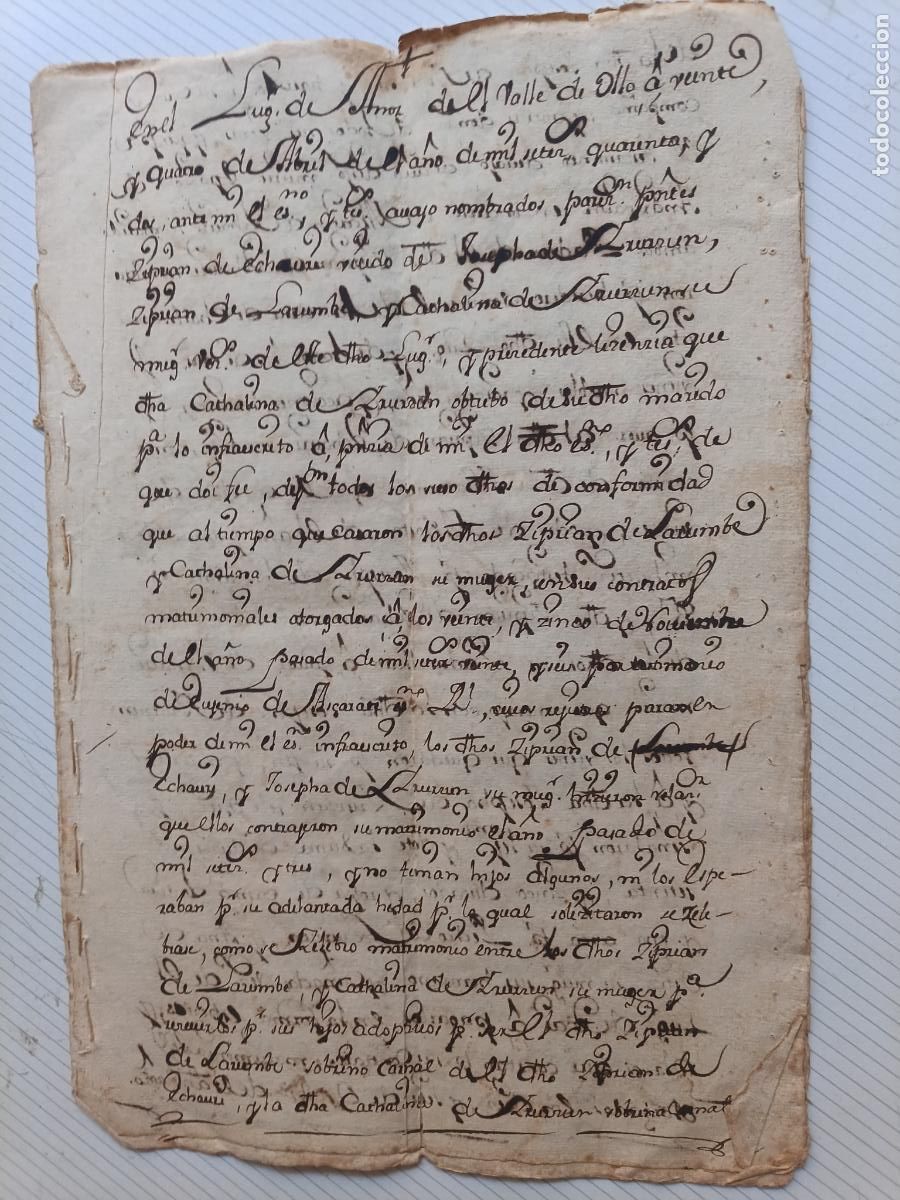 En el Lug.r de Anoz de el Valle de Ollo á veinte,
y quatro, de Abril de el año de mil setez.s quarenta, y
dos, ante mi el es.no, y tt.s avajo nombrados parez.n pntes
Ziprian de Echauri vezido de Josepha de Yrurzun,
Ziprian de Larumbe, y Cathalina de Yrurzun su
muger vez.s de este dho Lug.r, y prezedente lizenzia que
dha Cathalina de Yrurzun obtubo de su dho marido
p.a lo infraescrito á presenzia de mi el dho es.no, y tt.s de
que doi fee, de todos los suso dhos de conformidad
que al tiempo que casaron los dhos Ziprian de Larumbe
y Cathalina de Yrurzun, su muger, en sus contratos
matrimoniales otorgados á los veinte, y zinco de Noviembre
de el año pasado de mil setez.s veinte, y testimonio
de Eugenio de Aizcaran es.no Rl, cuios paran en
poder de mi el es.no infraescrito, los dhos Ziprian de
Echauri, y Josepha de Yrurzun su mug.r hizieron relaz.n
que ellos contrajeron su matrimonio el año pasado de
mil setez.s y tres, y no tenian hijos algunos, ni los espe-
raban p.r su adelantada hedad p.r lo qual solizitaron se zele-
brase, como se zelebro matrimonio entre los dhos Ziprian
de Larumbe, y Cathalina de Yrurzun su muger p.a
p.r sus hijos adoptivos p.r ser el dho Ziprian
de Larumbe sobrino carnal de el dho Ziprian de
Echauri, y la dha Cathalina de Yrurzun sobrina carnal
todocoleccion